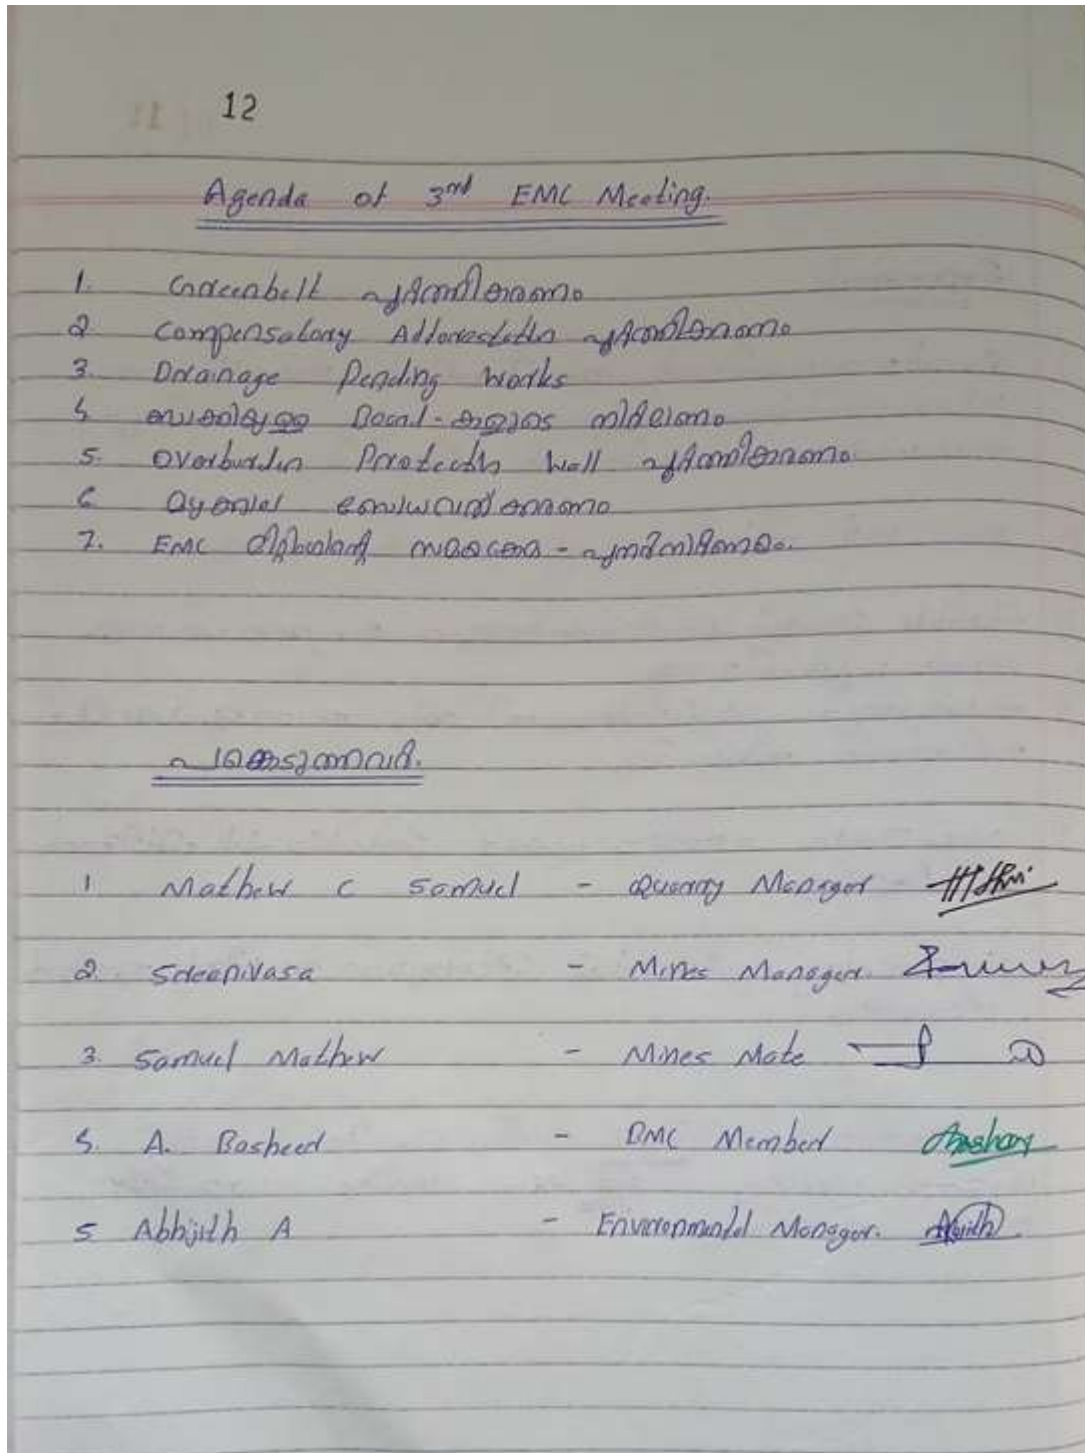 12
Agenda of 3rd EMC Meeting.
1. Greenbelt പൂർത്തീകരണം
2 Compensatory Afforestation പൂർത്തീകരണം
3. Drainage Pending Works
4 ബാക്കിയുള്ള Board-കളുടെ നിർമാണം
5. Overburden Protection Wall പൂർത്തീകരണം
6 ബോധവത്ക്കരണം
7. EMC - പുനർനിർണയം.
പങ്കെടുന്നവർ.
1 Mathew C Samuel - Quarry Manager
2. Sreenivasa - Mines Manager.
3. Samuel Mathew - Mines Mate
4. A. Basheer - EMC Member
5 Abhijith A - Environmental Manager.